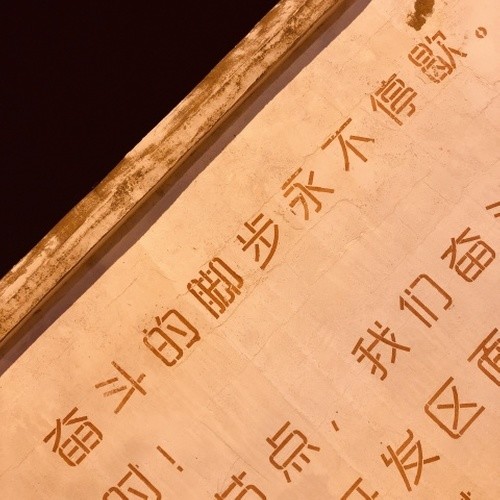 奋斗的脚步永不停歇。
时！
节点，我们奋
开发区面